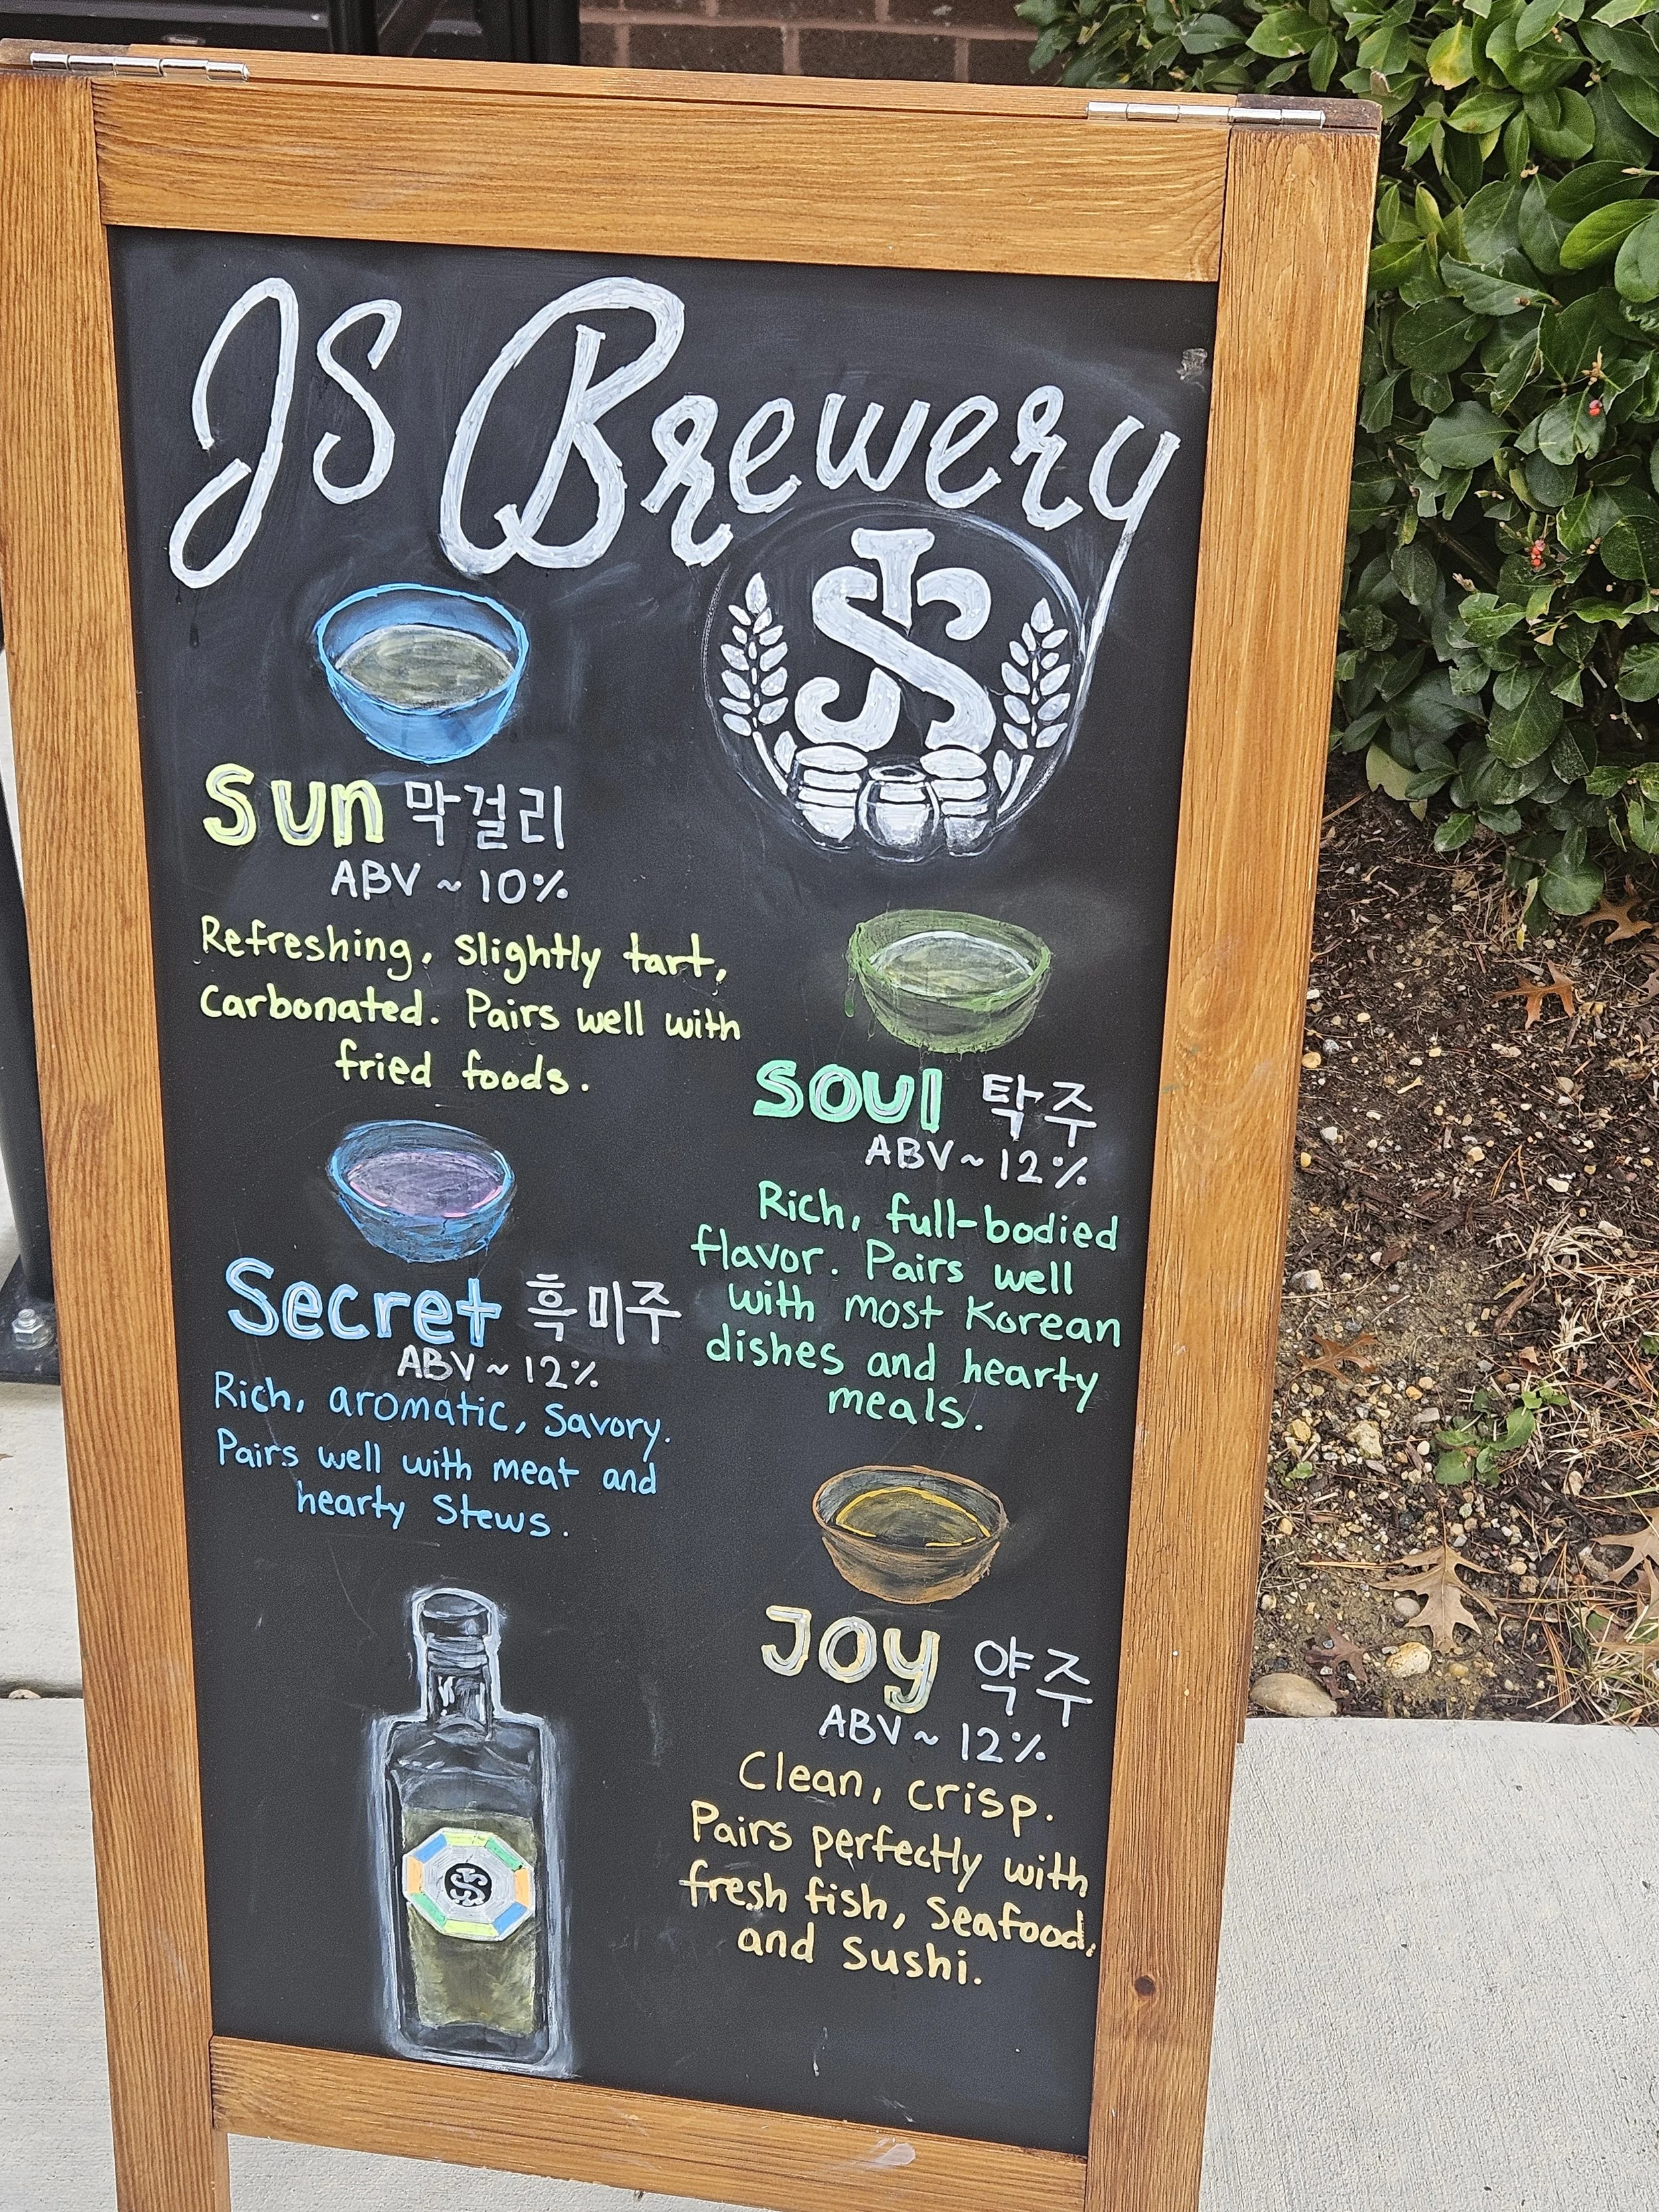 JS Brewery
JS
Sun 막걸리
ABV ~ 10%
Refreshing, slightly tart,
Carbonated. Pairs well with
fried foods.
Soul 탁주
ABV ~ 12%
Rich, full-bodied
flavor. Pairs well
with most Korean
dishes and hearty
meals.
Secret 흑미주
ABV ~ 12%
Rich, aromatic, Savory.
Pairs well with meat and
hearty Stews.
Joy 약주
ABV ~ 12%
Clean, crisp.
Pairs perfectly with
fresh fish, Seafood,
and Sushi.
JS